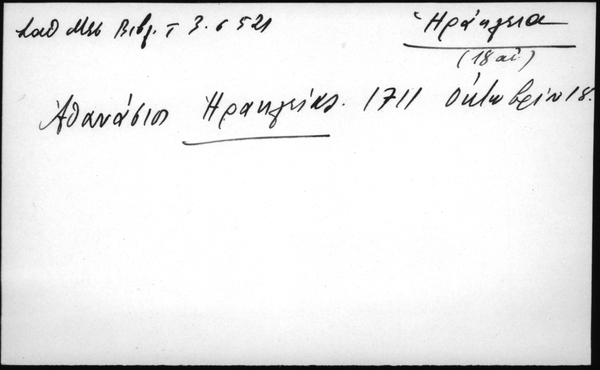 Σαθ Μεσ Βιβλ. τ 3. σ 521
Ἡράκλεια
(18 αἰ.)
Ἀθανάσιος Ἡρακλείας. 1711 Ὀκτωβρίου 18.